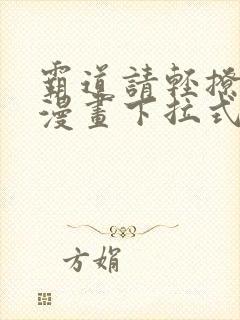 霸道請輕撩
漫畫下拉式
方娟